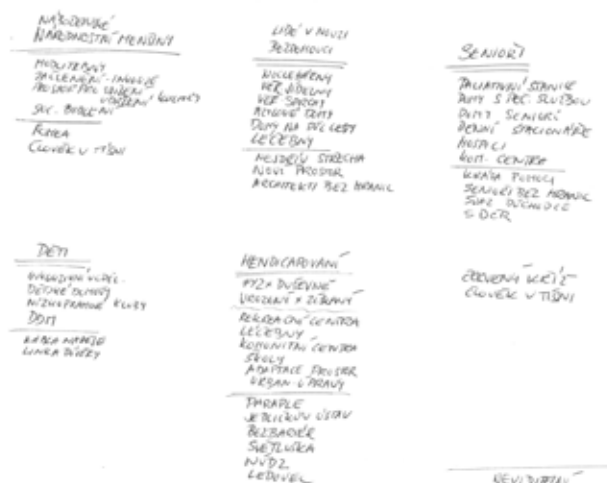 NÁBOŽENSKÉ
NÁRODNOSTNÍ MENŠINY
MODLITEBNY
ZAČLENĚNÍ - INKLUZE
PROSTOR PRO
KULTURY
SOC. BYDLENÍ
ČLOVĚK V TÍSNI
LIDÉ V NOUZI
BEZDOMOVCI
NOCLEHÁRNY
VEŘ. JÍDELNY
VEŘ. SPRCHY
AZYLOVÉ DOMY
DOMY NA PŮL CESTY
LÉČEBNY
NEJDŘÍV STŘECHA
NOVÝ PROSTOR
ARCHITEKTI BEZ HRANIC
SENIOŘI
PALIATIVNÍ STANICE
DOMY S PEČ. SLUŽBOU
DOMY SENIORŮ
DENNÍ STACIONÁŘE
HOSPICI
KOM. CENTRA
KRÁSA POMOCI
SENIOŘI BEZ HRANIC
SVAZ DŮCHODCŮ
DĚTI
NÍZKOPRAHOVÉ KLUBY
DDM
LINKA DŮVĚRY
HENDICAPOVANÍ
FYZ. × DUŠEVNĚ
VROZENÝ × ZÍSKANÝ
REKREAČNÍ CENTRA
LÉČEBNY
KOMUNITNÍ CENTRA
ŠKOLY
ADAPTACE PROSTOR
URBAN. ÚPRAVY
PARAPLE
JEDLIČKŮV ÚSTAV
BEZBARIÉR
SVĚTLUŠKA
NUDZ
LEDOVEC
ČERVENÝ KŘÍŽ
ČLOVĚK V TÍSNI